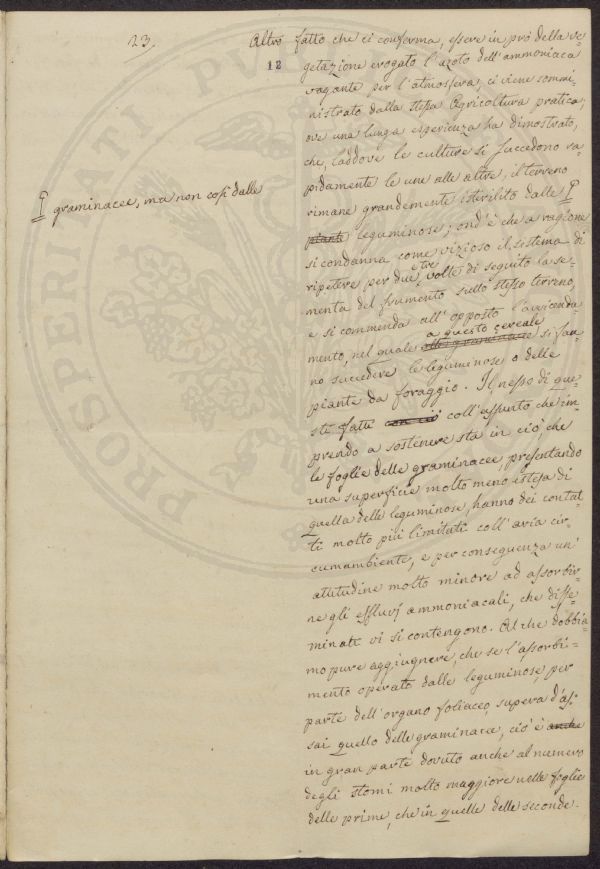 23.
12
Altro fatto che ci conferma, essere in prò della ve-
getazione erogato l'azoto dell'ammoniaca
vagante per l'atmosfera, ci viene sommi-
nistrato dalla stessa Agricoltura pratica;
ove una lunga esperienza ha dimostrato,
che, laddove le culture si succedono ra-
pidamente le une alle altre, il terreno
rimane grandemente isterilito dalle ¶
¶ graminacee, ma non così dalle
piante leguminose; ond'è che a ragione
si condanna come vizioso il sistema di
ripetere per due e tre volte di seguito la se-
menta del frumento sullo stesso terreno,
e si commenda all'opposto l'avvicenda-
mento, nel quale alle graminacee a questo cereale si fan-
no succedere le leguminose o delle
piante da foraggio. Il nesso di que-
sti fatti con ciò coll'assunto che im-
prendo a sostenere sta in ciò, che
le foglie delle graminacee, presentando
una superficie molto meno estesa di
quella delle leguminose, hanno dei contat-
ti molto più limitati coll'aria cir-
cumambiente, e per conseguenza un'
attitudine molto minore ad assorbir-
ne gli effluvj ammoniacali, che disse-
minati vi si contengono. Al che dobbia-
mo pure aggiugnere, che se l'assorbi-
mento operato dalle leguminose, per
parte dell'organo foliaceo, supera d'as-
sai quello delle graminacee, ciò è anche
in gran parte dovuto anche al numero
degli stomi molto maggiore nelle foglie
delle prime, che in quelle delle seconde.
PROSPERITATI PUBLICAE